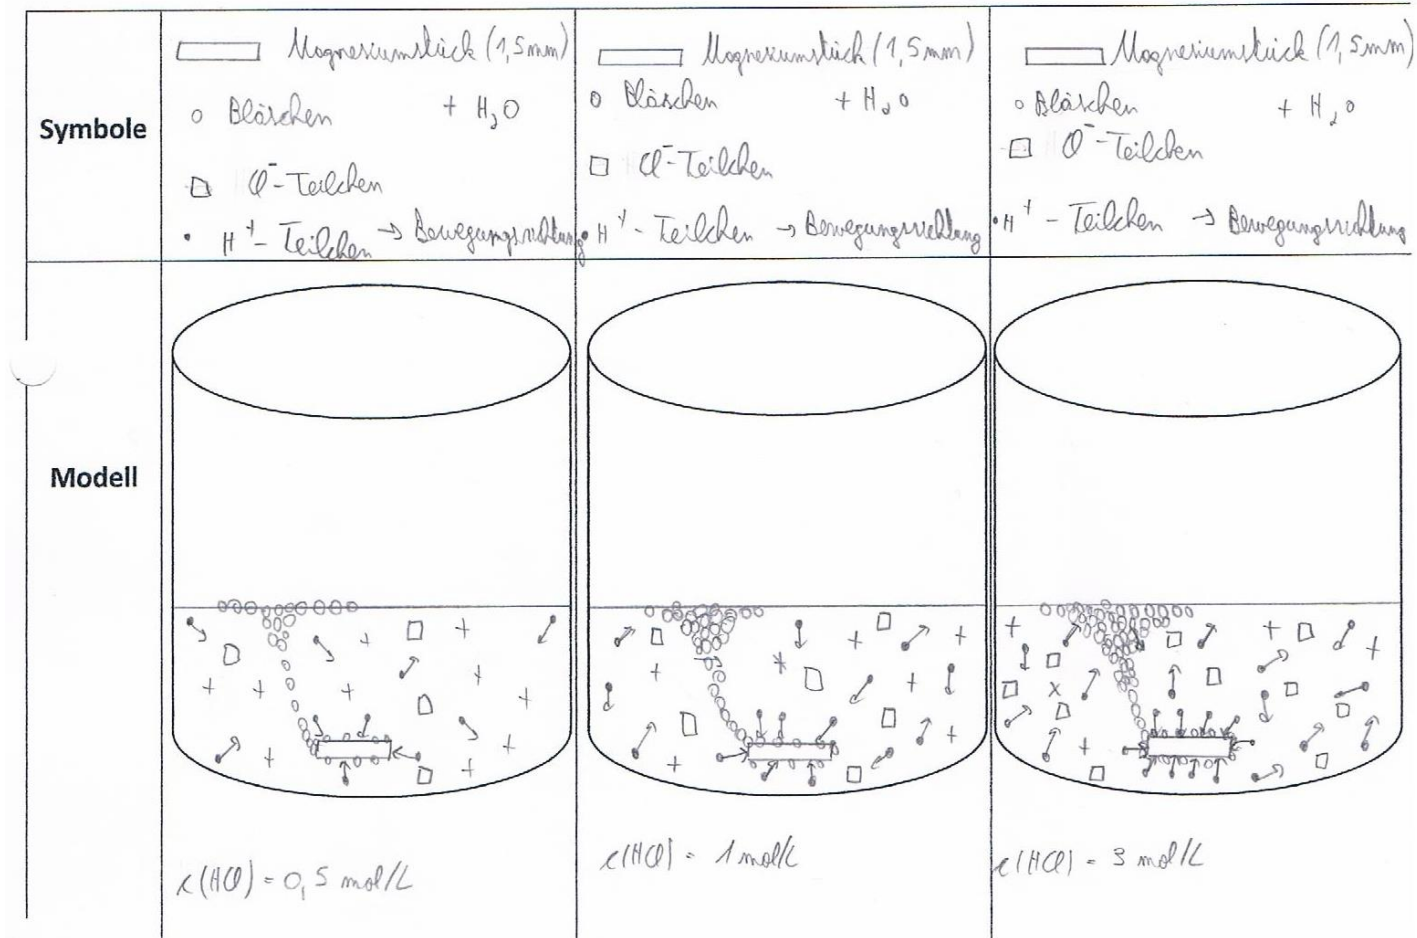 Symbole
Magnesiumstück (1,5mm)
Bläschen + H₂O
Cl⁻-Teilchen
H⁺-Teilchen → Bewegungsrichtung
Magnesiumstück (1,5mm)
Bläschen + H₂O
Cl⁻-Teilchen
H⁺-Teilchen → Bewegungsrichtung
Magnesiumstück (1,5mm)
Bläschen + H₂O
Cl⁻-Teilchen
H⁺-Teilchen → Bewegungsrichtung
Modell
c(HCl) = 0,5 mol/L
c(HCl) = 1 mol/L
c(HCl) = 3 mol/L